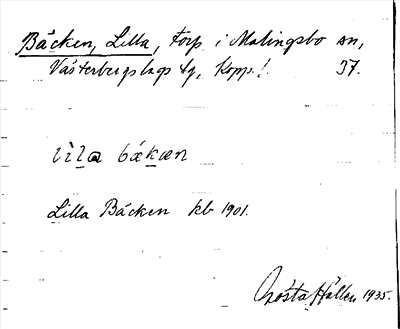 Bäcken, Lilla, torp i Malingsbo sn,
Västerbergslags tg, Kopp. l. 37.
lìla bækæn
Lilla Bäcken kb 1901.
Gösta Hallen 1935.